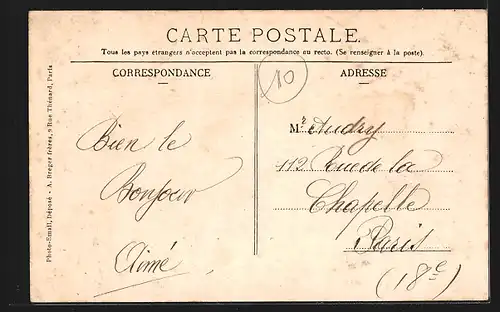 CARTE POSTALE
Tous les pays étrangers n'acceptent pas la correspondance au recto. (Se renseigner à la poste).
CORRESPONDANCE
ADRESSE
10
Photo-Email, Déposé - A. Breger frères, 9 Rue Thénard, Paris
Bien le
Bonjour
Aimé
Mr Audry
112 Rue de la
Chapelle
Paris
(18e)